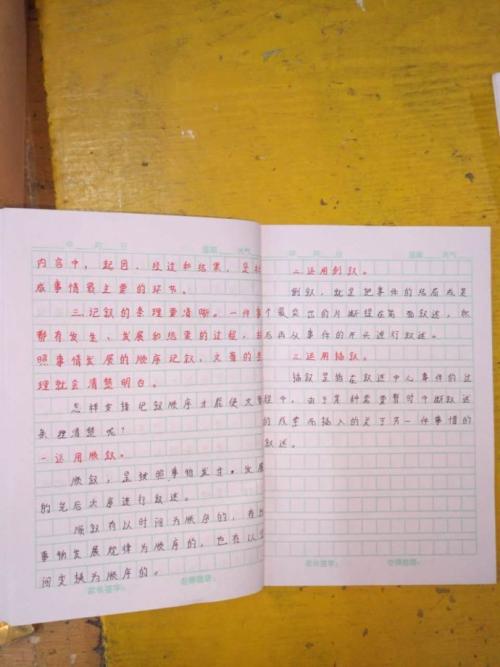 年 月 日 星期 天气
内容中，起因、经过和结果，是构
成事情最主要的环节。
三.记叙的条理要清晰。一件事
都有发生、发展和结束的过程，
照事情发展的顺序记叙，文章的
理就会清楚明白。
怎样安排记叙顺序才能使文章
条理清楚呢？
一运用顺叙。
顺叙，是按照事物发生、发展
的先后次序进行叙述。
顺叙有以时间为顺序的，有
事物发展规律为顺序的，也有以
间变换为顺序的。
家长签字： 老师批语：
年 月 日 星期 天气
二运用倒叙。
倒叙，就是把事件的结局或是
个最突出的片断提在前面叙述，
后再从事件的开头进行叙述。
三运用插叙。
插叙是指在叙述中心事件的过
程中，由于某种需要暂时中断叙述
的线索而插入的关于另一件事情的
叙述。
家长签字： 老师批语：